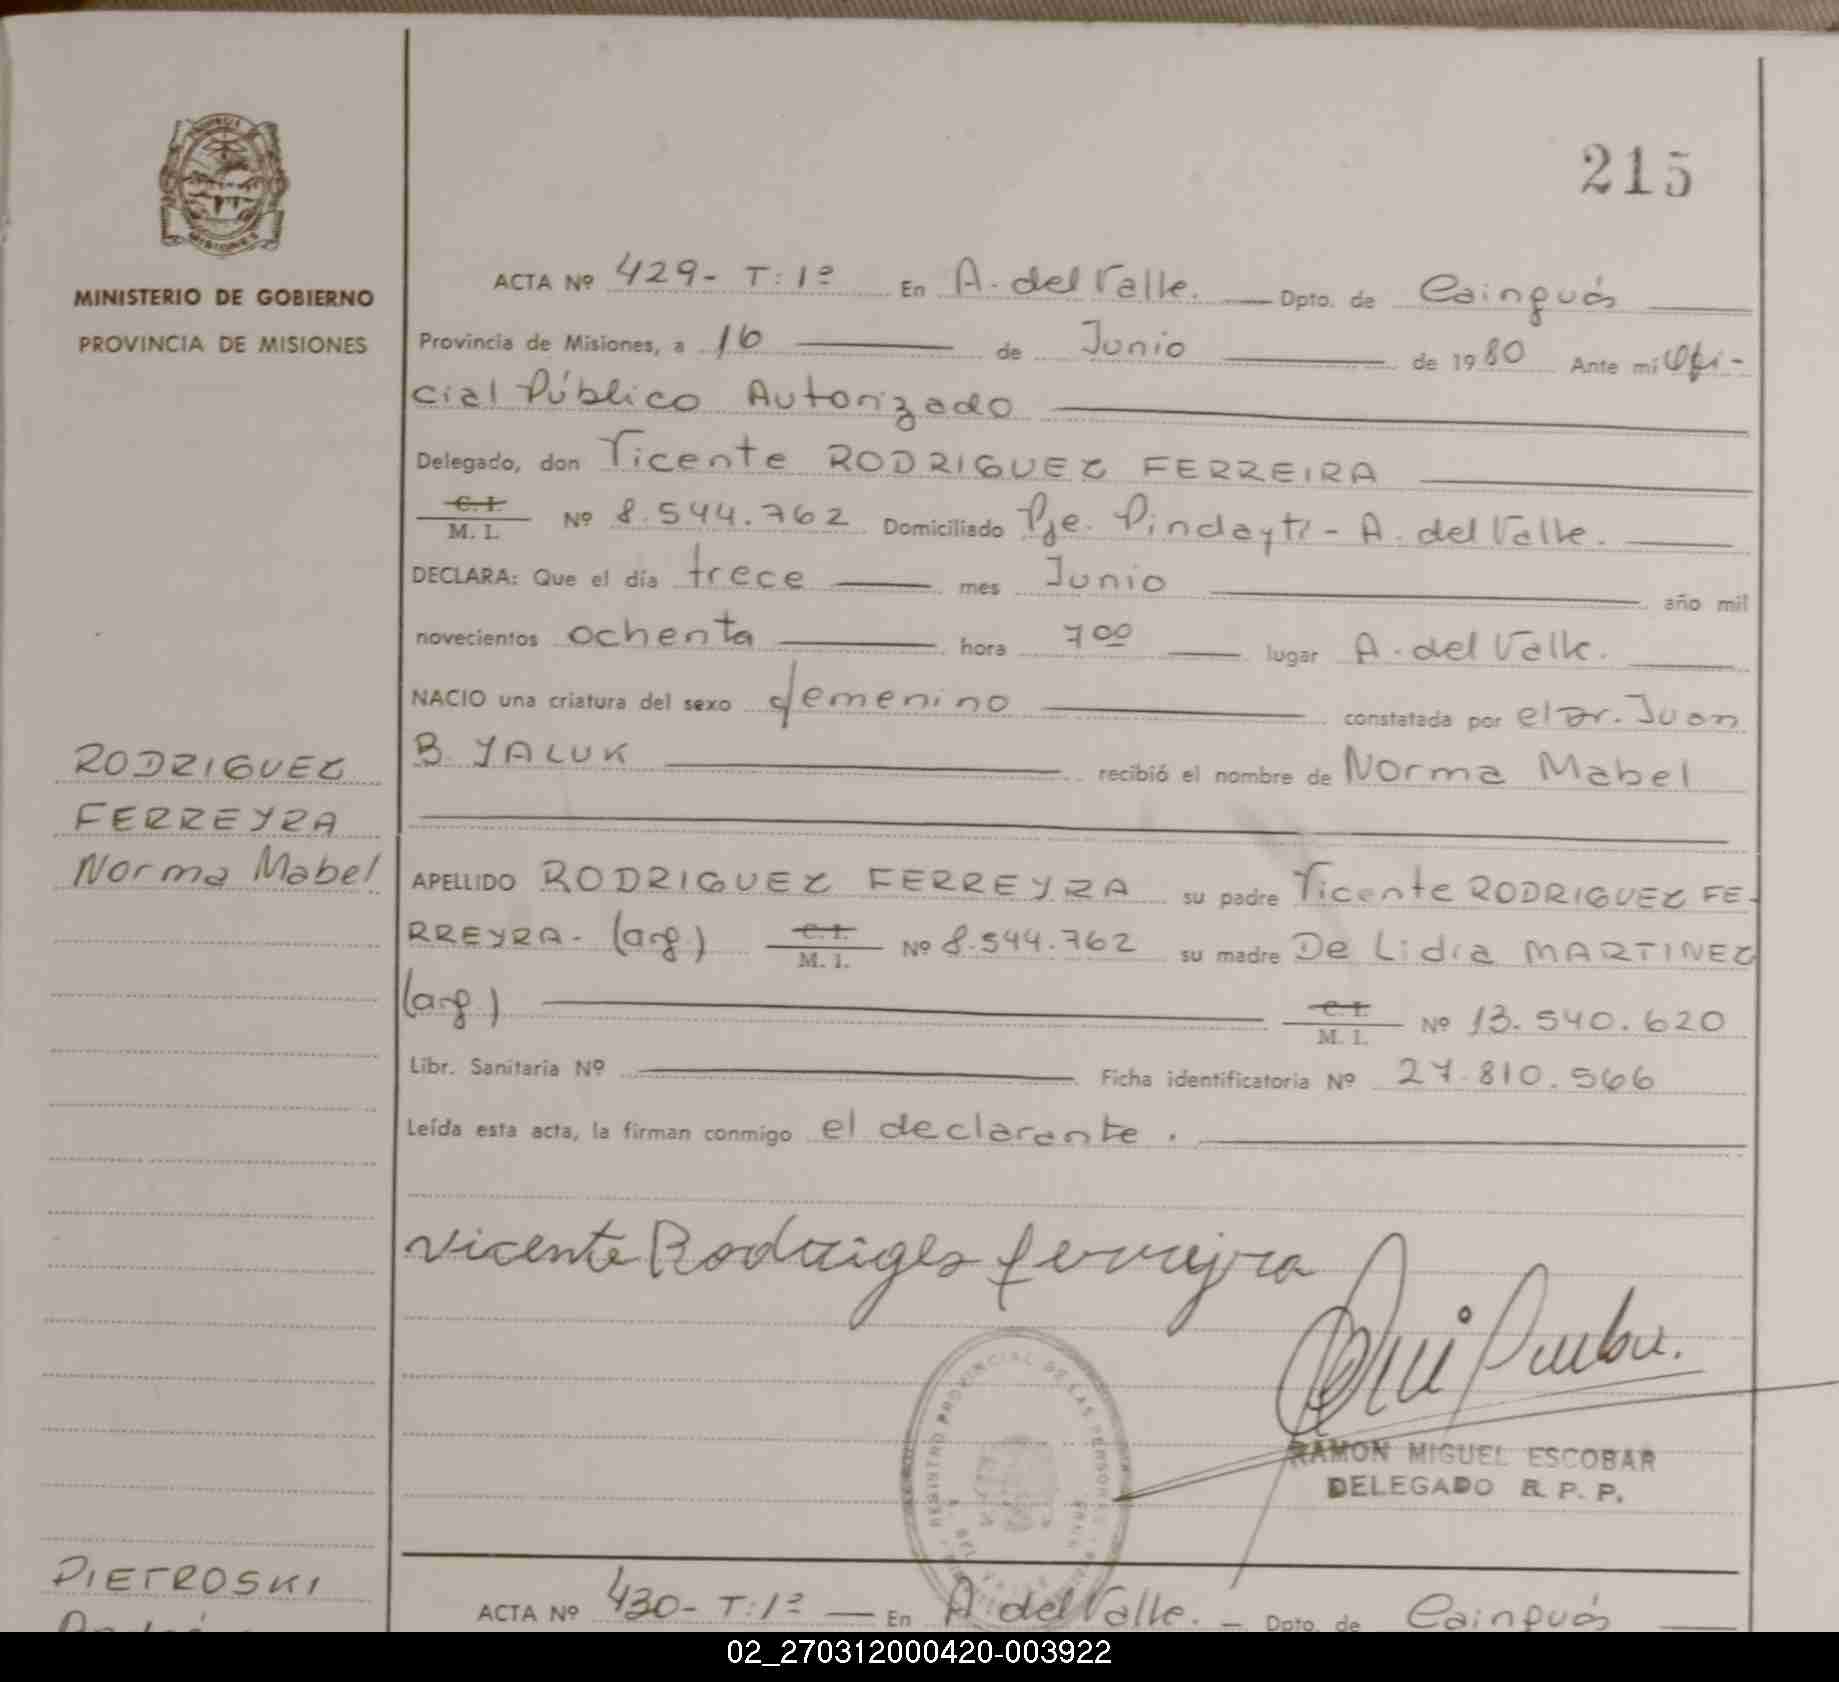 215
MINISTERIO DE GOBIERNO
PROVINCIA DE MISIONES
ACTA Nº 429- T: 1º En A. del Valle. Dpto. de Cainguás
Provincia de Misiones, a 16 de Junio de 1980 Ante mí Ofi-
cial Público Autorizado
Delegado, don Vicente RODRIGUEZ FERREIRA
C. I.
M. I. Nº 8.544.762 Domiciliado Pje. Pindaytí - A. del Valle.
DECLARA: Que el día trece mes Junio año mil
novecientos ochenta hora 7 00 lugar A. del Valle.
NACIO una criatura del sexo femenino constatada por el Dr. Juan
B. YALUK recibió el nombre de Norma Mabel
RODRIGUEZ
FERREYRA
Norma Mabel
APELLIDO RODRIGUEZ FERREYRA su padre Vicente RODRIGUEZ FE-
RREYRA- (arg.) C. I. M. I. Nº 8.544.762 su madre De Lidia MARTINEZ
(arg.) C. I. M. I. Nº 13.540.620
Libr. Sanitaria Nº Ficha identificatoria Nº 27.810.566
Leída esta acta, la firman conmigo el declarante.
Vicente Rodriges ferreyra
REGISTRO PROVINCIAL DE LAS PERSONAS
RAMON MIGUEL ESCOBAR
DELEGADO R. P. P.
PIETROSKI
ACTA Nº 430- T: 1º En A. del Valle. - Dpto. de Cainguás
02_270312000420-003922